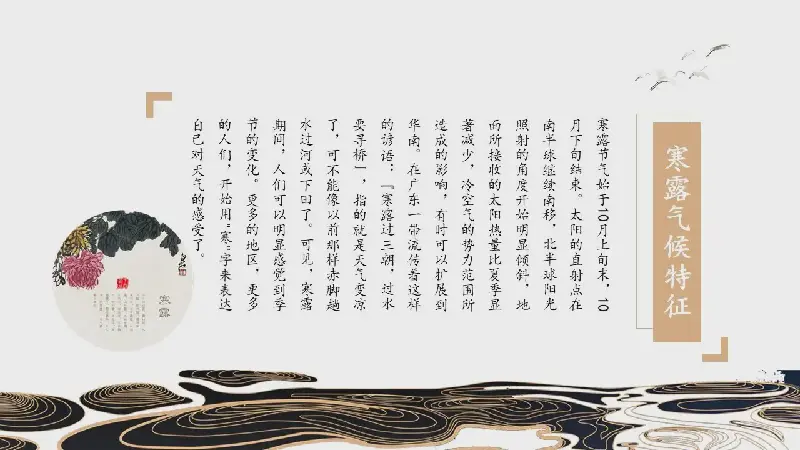 寒露气候特征
寒露节气始于10月上旬末，10
月下旬结束。太阳的直射点在
南半球继续南移，北半球阳光
照射的角度开始明显倾斜，地
面所接收的太阳热量比夏季显
著减少，冷空气的势力范围所
造成的影响，有时可以扩展到
华南。在广东一带流传着这样
的谚语：“寒露过三朝，过水
要寻桥”，指的就是天气变凉
了，可不能像以前那样赤脚趟
水过河或下田了。可见，寒露
期间，人们可以明显感觉到季
节的变化。更多的地区，更多
的人们，开始用“寒”字来表达
自己对天气的感受了。
寒露